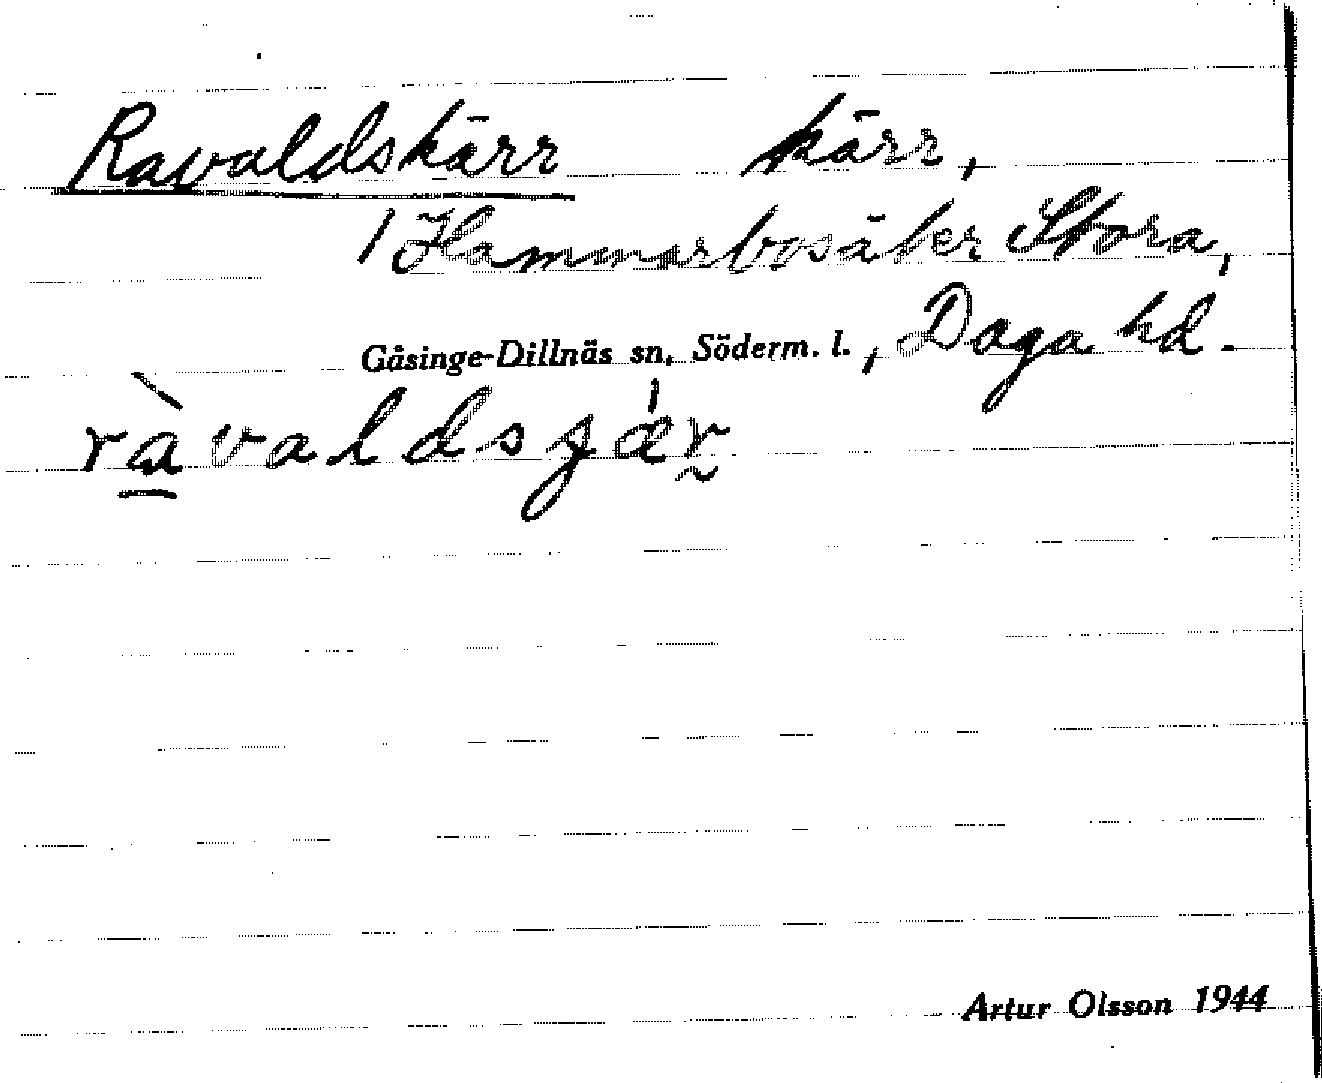 Ravaldskärr kärr,
/ Hammarbosäter Stora,
Gåsinge-Dillnäs sn, Söderm. l., Daga hd.
Artur Olsson 1944